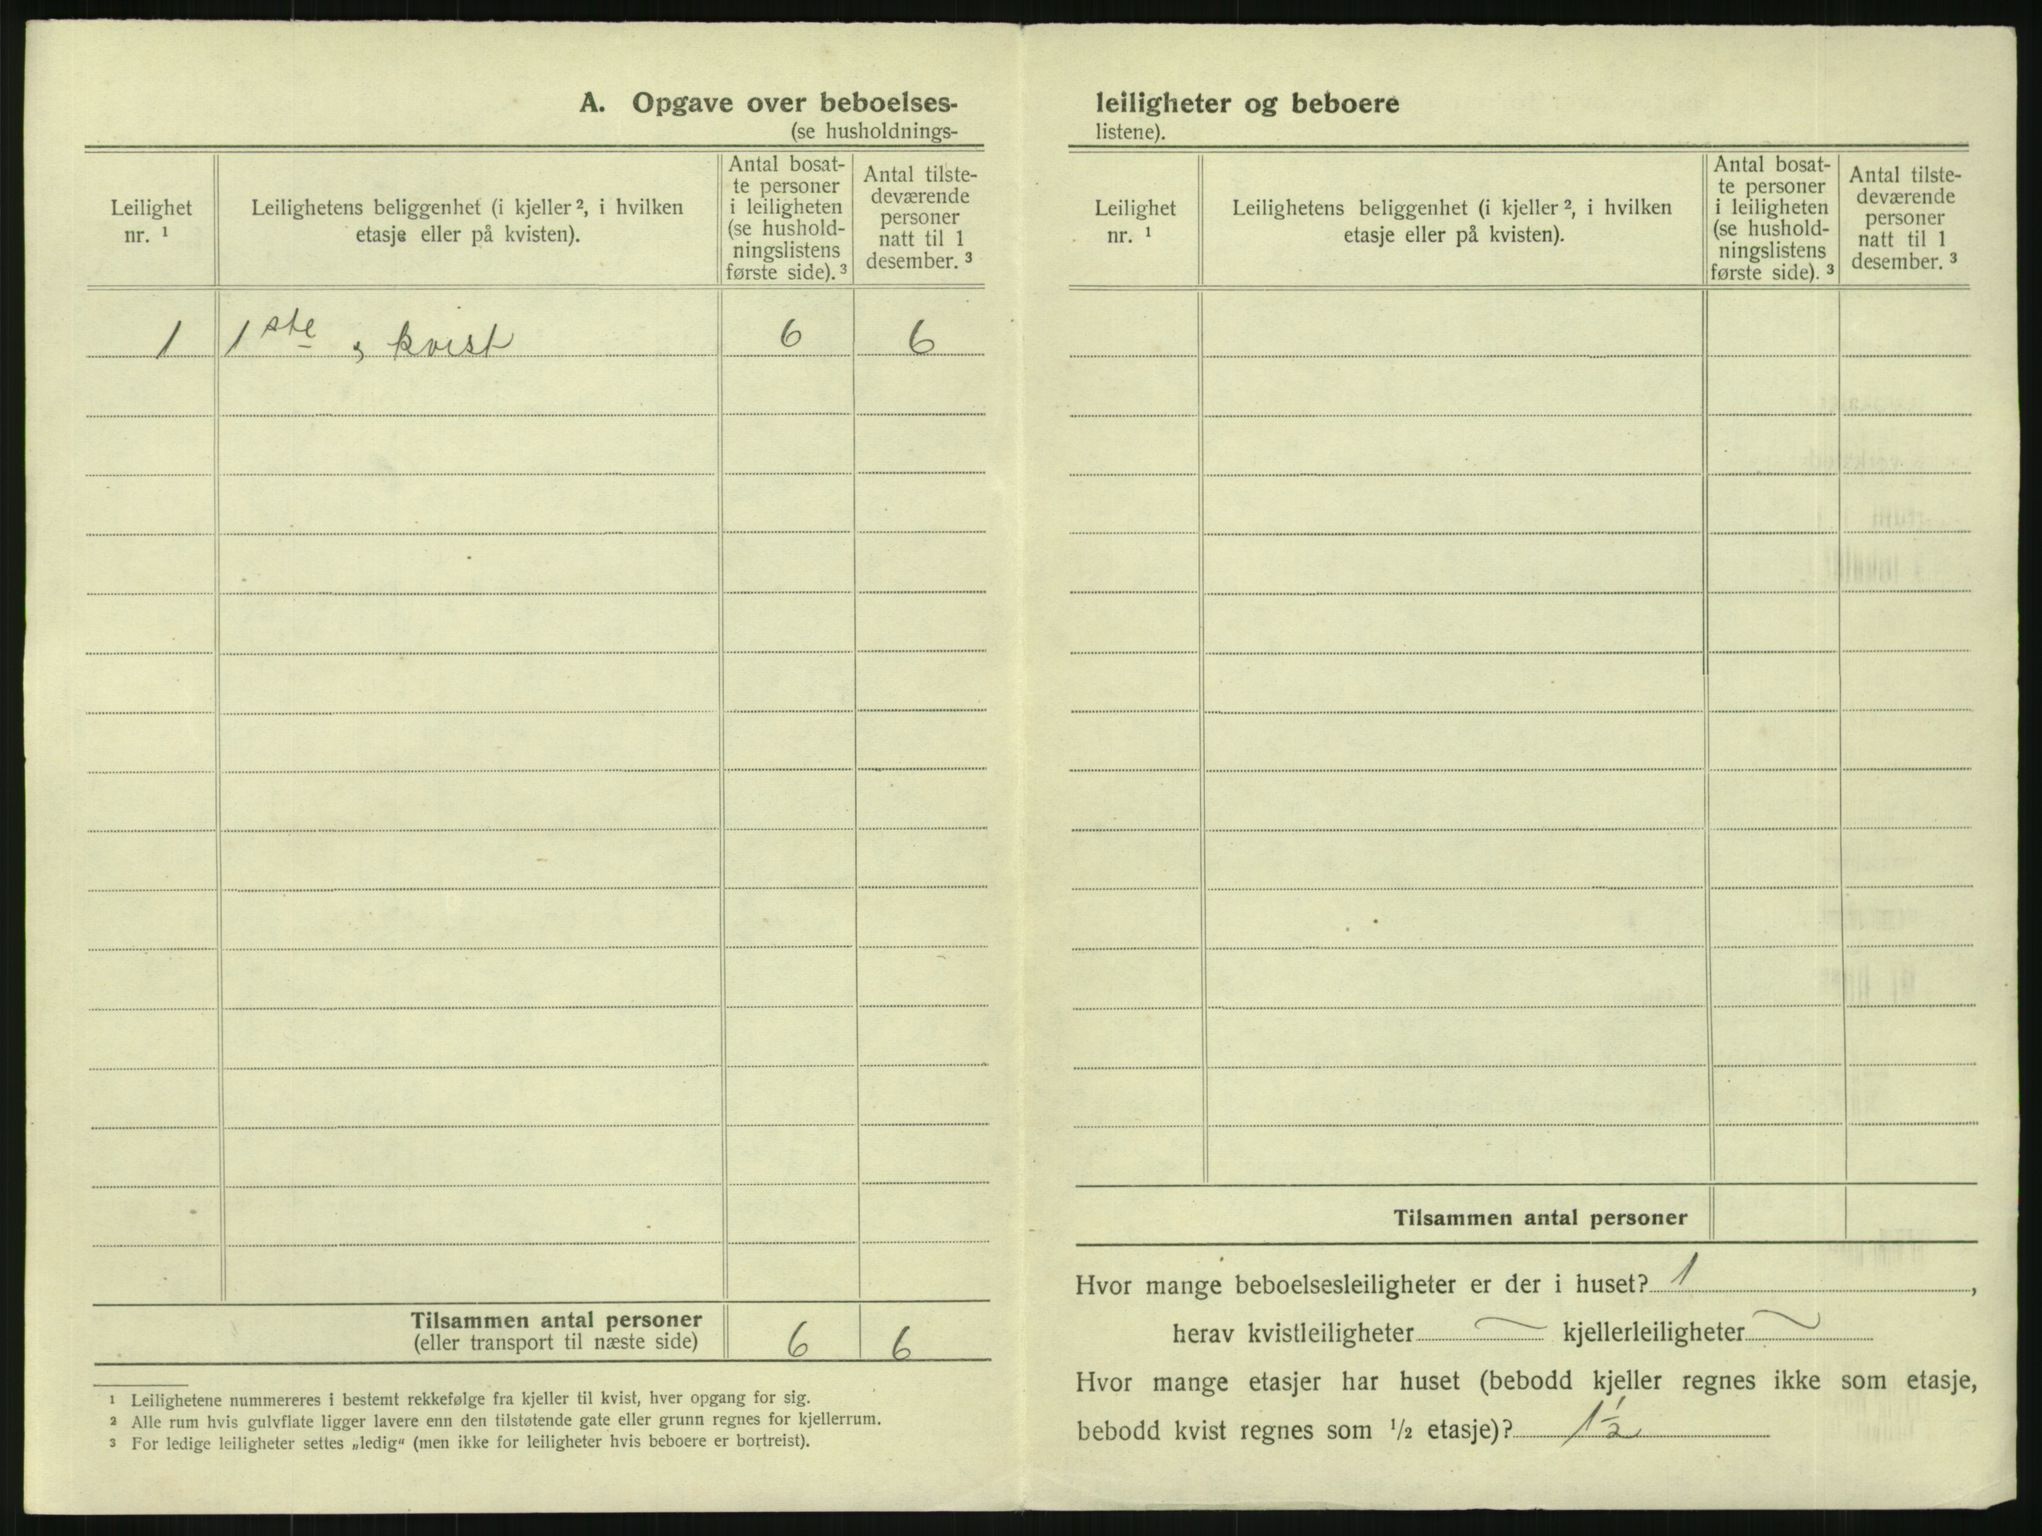 A. Opgave over beboelses-
(se husholdnings-
Leilighet
nr. ¹
Leilighetens beliggenhet (i kjeller ², i hvilken
etasje eller på kvisten).
Antal bosat-
te personer
i leiligheten
(se hushold-
ningslistens
første side). ³
Antal tilste-
deværende
personer
natt til 1
desember. ³
1 1ste , kvist 6 6
Tilsammen antal personer
(eller transport til næste side) 6 6
¹ Leilighetene nummereres i bestemt rekkefølge fra kjeller til kvist, hver opgang for sig.
² Alle rum hvis gulvflate ligger lavere enn den tilstøtende gate eller grunn regnes for kjellerrum.
³ For ledige leiligheter settes „ledig“ (men ikke for leiligheter hvis beboere er bortreist).
leiligheter og beboere
listene).
Leilighet
nr. ¹
Leilighetens beliggenhet (i kjeller ², i hvilken
etasje eller på kvisten).
Antal bosat-
te personer
i leiligheten
(se hushold-
ningslistens
første side). ³
Antal tilste-
deværende
personer
natt til 1
desember. ³
Tilsammen antal personer
Hvor mange beboelsesleiligheter er der i huset? 1 ,
herav kvistleiligheter ~ kjellerleiligheter ~
Hvor mange etasjer har huset (bebodd kjeller regnes ikke som etasje,
bebodd kvist regnes som ½ etasje)? 1½